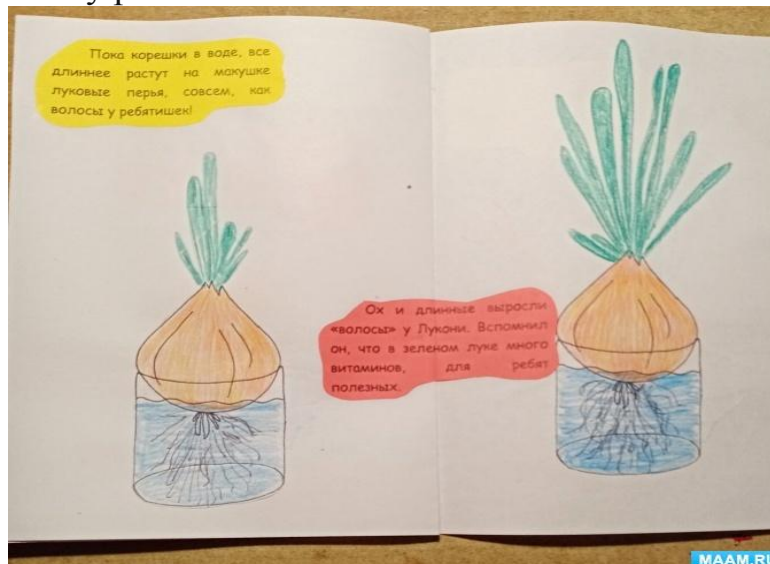 Пока корешки в воде, все
длиннее растут на макушке
луковые перья, совсем, как
волосы у ребятишек!
Ох и длинные выросли
«волосы» у Лукони. Вспомнил
он, что в зеленом луке много
витаминов, для ребят
полезных.
MAAM.RU